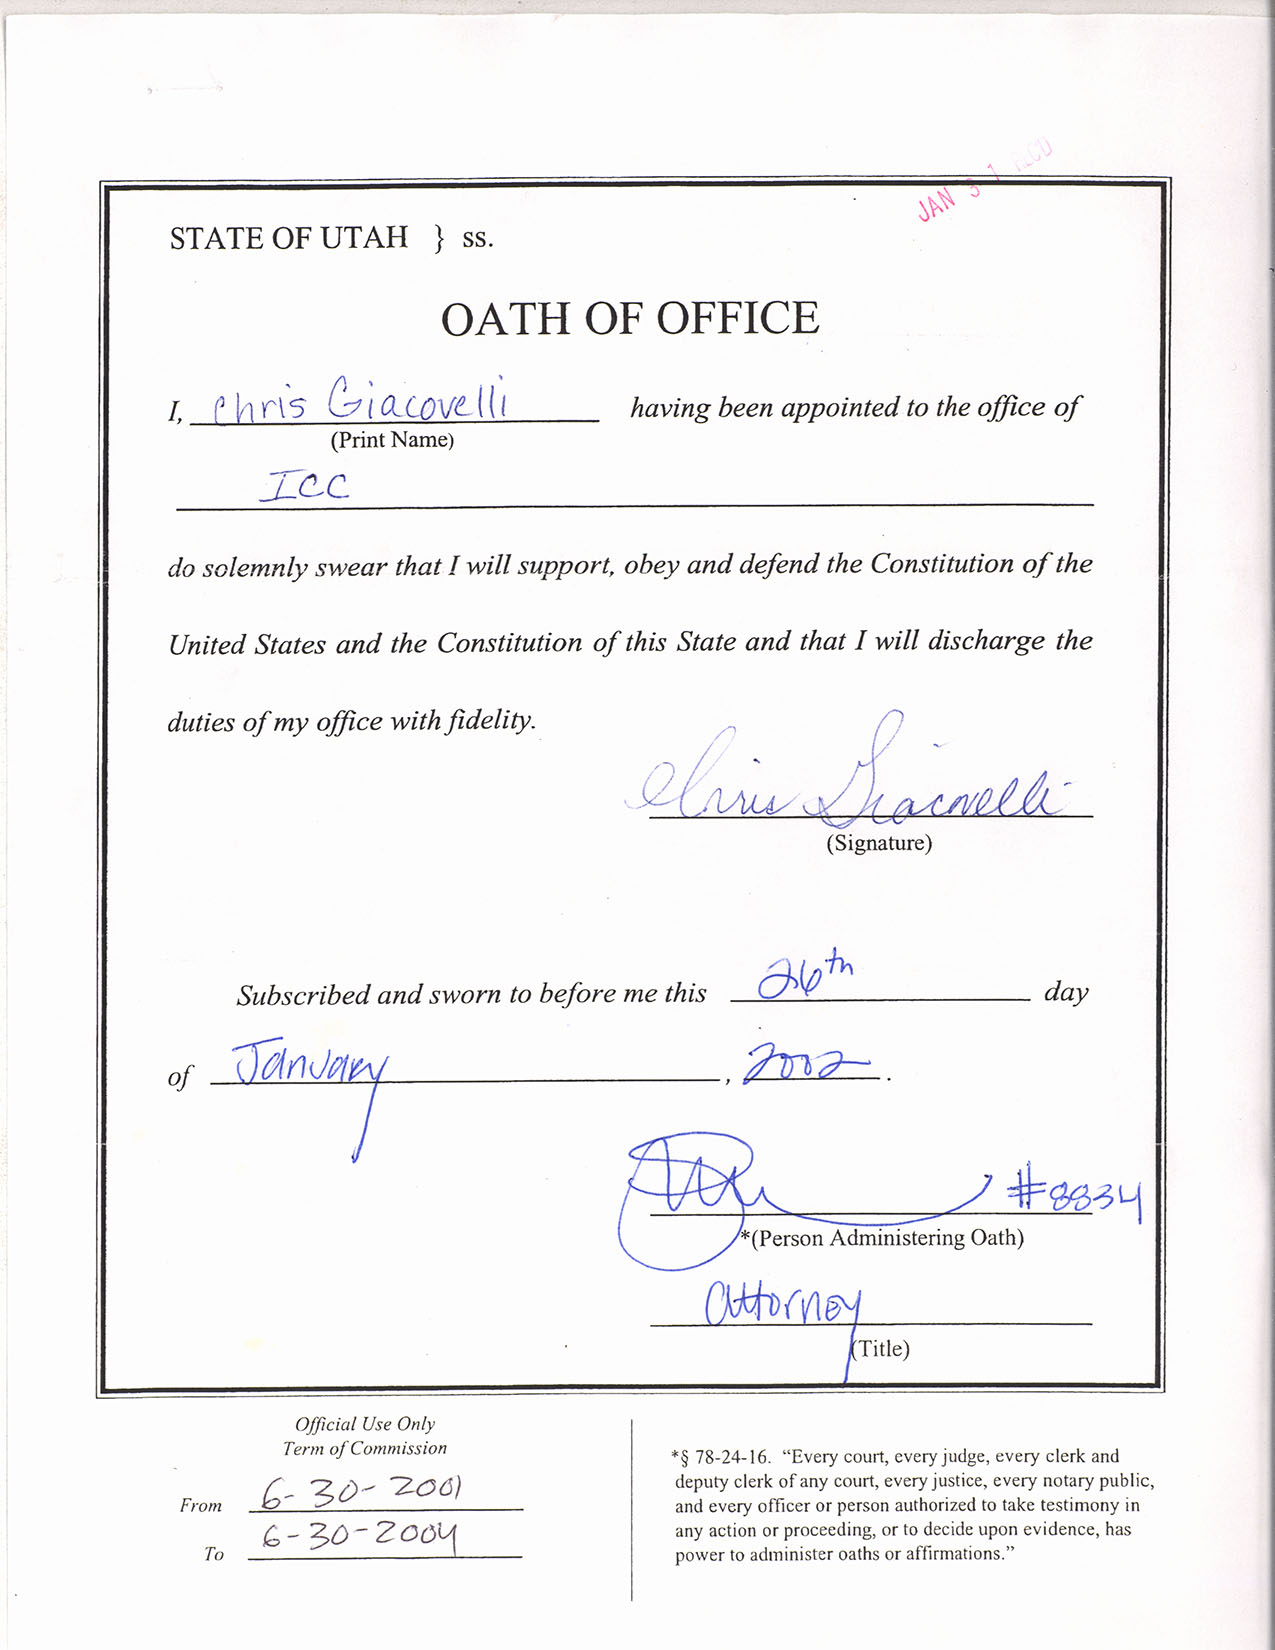 JAN 31 RECD
STATE OF UTAH } ss.
OATH OF OFFICE
I, Chris Giacovelli having been appointed to the office of
(Print Name)
ICC
do solemnly swear that I will support, obey and defend the Constitution of the
United States and the Constitution of this State and that I will discharge the
duties of my office with fidelity.
Chris Giacovelli
(Signature)
Subscribed and sworn to before me this 26th day
of January, 2002.
#8834
*(Person Administering Oath)
Attorney
(Title)
Official Use Only
Term of Commission
From 6-30-2001
To 6-30-2004
*§ 78-24-16. “Every court, every judge, every clerk and
deputy clerk of any court, every justice, every notary public,
and every officer or person authorized to take testimony in
any action or proceeding, or to decide upon evidence, has
power to administer oaths or affirmations.”